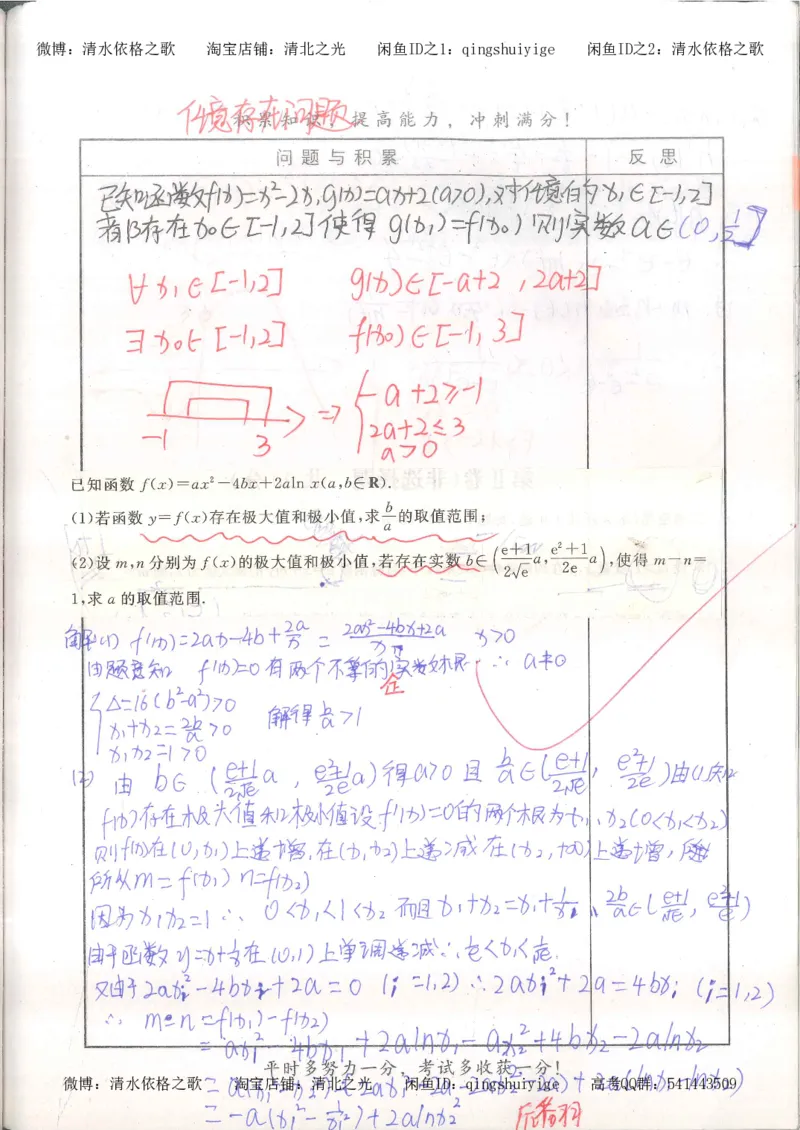 微博：清水依格之歌 淘宝店铺：清北之光 闲鱼ID之1：qingshuiyige 闲鱼ID之2：清水依格之歌
任意存在问题
积累知识，提高能力，冲刺满分！
问题与积累 反思
已知函数f(x)=x²-2x,g(x)=ax+2(a>0),对任意的x₁∈[-1,2]
都存在x₀∈[-1,2]使得g(x₁)=f(x₀)则实数a∈(0,½]
∀x₁∈[-1,2] g(x)∈[-a+2，2a+2]
∃x₀∈[-1,2] f(x₀)∈[-1,3]
-a+2≥-1
-1 3 ⇒ 2a+2≤3
a>0
已知函数 f(x)=ax²-4bx+2aln x(a,b∈R).
(1)若函数 y=f(x)存在极大值和极小值,求 b/a 的取值范围;
(2)设 m,n 分别为 f(x)的极大值和极小值,若存在实数 b∈((e+1)/(2√e) a, (e²+1)/(2e) a),使得 m-n=
1,求 a 的取值范围.
解(1) f'(x)=2ax-4b+2a/x = (2ax²-4bx+2a)/x x>0
由题意知 f'(x)=0有两个不等的实数根 ∴ a≠0
正
Δ=16(b²-a²)>0
x₁+x₂=2b/a>0 解得 b/a>1
x₁x₂=1>0
(2) 由 b∈((e+1)/(2√e) a, (e²+1)/(2e) a)得a>0且 b/a∈((e+1)/(2√e), (e²+1)/(2e))由(1)知
f(x)存在极大值和极小值设f'(x)=0的两个根为x₁,x₂(0<x₁<x₂)
则f(x)在(0,x₁)上递增,在(x₁,x₂)上递减在(x₂,+∞)上递增,
所以m=f(x₁) n=f(x₂)
因为x₁x₂=1 ∴ 0<x₁<1<x₂ 而且x₁+x₂=x₁+1/x₁=2b/a∈((e+1)/√e, (e²+1)/e)
由于函数y=x+1/x在(0,1)上单调递减∴ 1/e<x₁<1/√e
又由于2axᵢ²-4bxᵢ+2a=0 (i=1,2) ∴ 2axᵢ²+2a=4bxᵢ (i=1,2)
∴ m-n=f(x₁)-f(x₂)
=ax₁²-4bx₁+2alnx₁-ax₂²+4bx₂-2alnx₂
平时多努力一分，考试多收获一分！
微博：清水依格之歌 淘宝店铺：清北之光 闲鱼ID：qingshuiyige 高考QQ群：541443509
=-a(x₁²-1/x₁²)+2alnx₁²